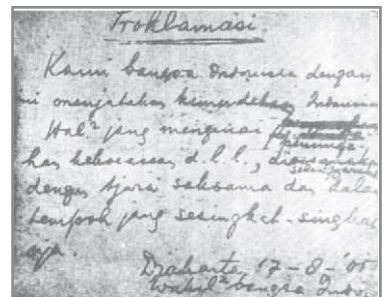 Proklamasi
Kami bangsa Indonesia dengan
ini menjatakan kemerdekaan Indonesia
Hal² jang mengenai
peminda-
han kekoeasaan d.l.l., diselenggarakan
dengan tjara saksama dan dalam
tempoh jang sesingkat-singkat
nja.
Djakarta, 17-8-'05
Wakil² bangsa Indo